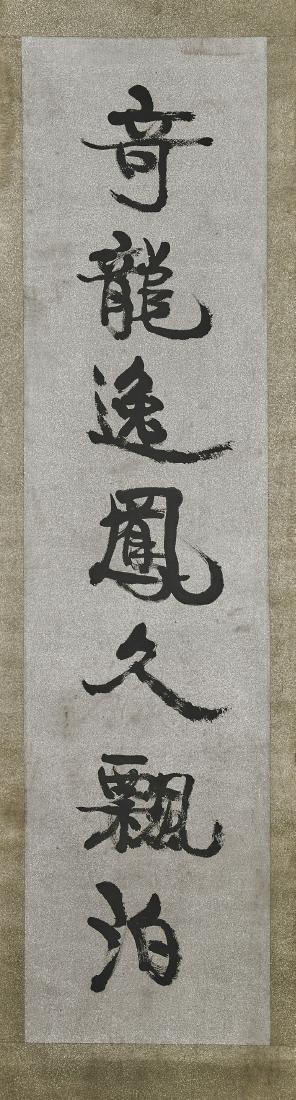 奇龍逸鳳久飄泊